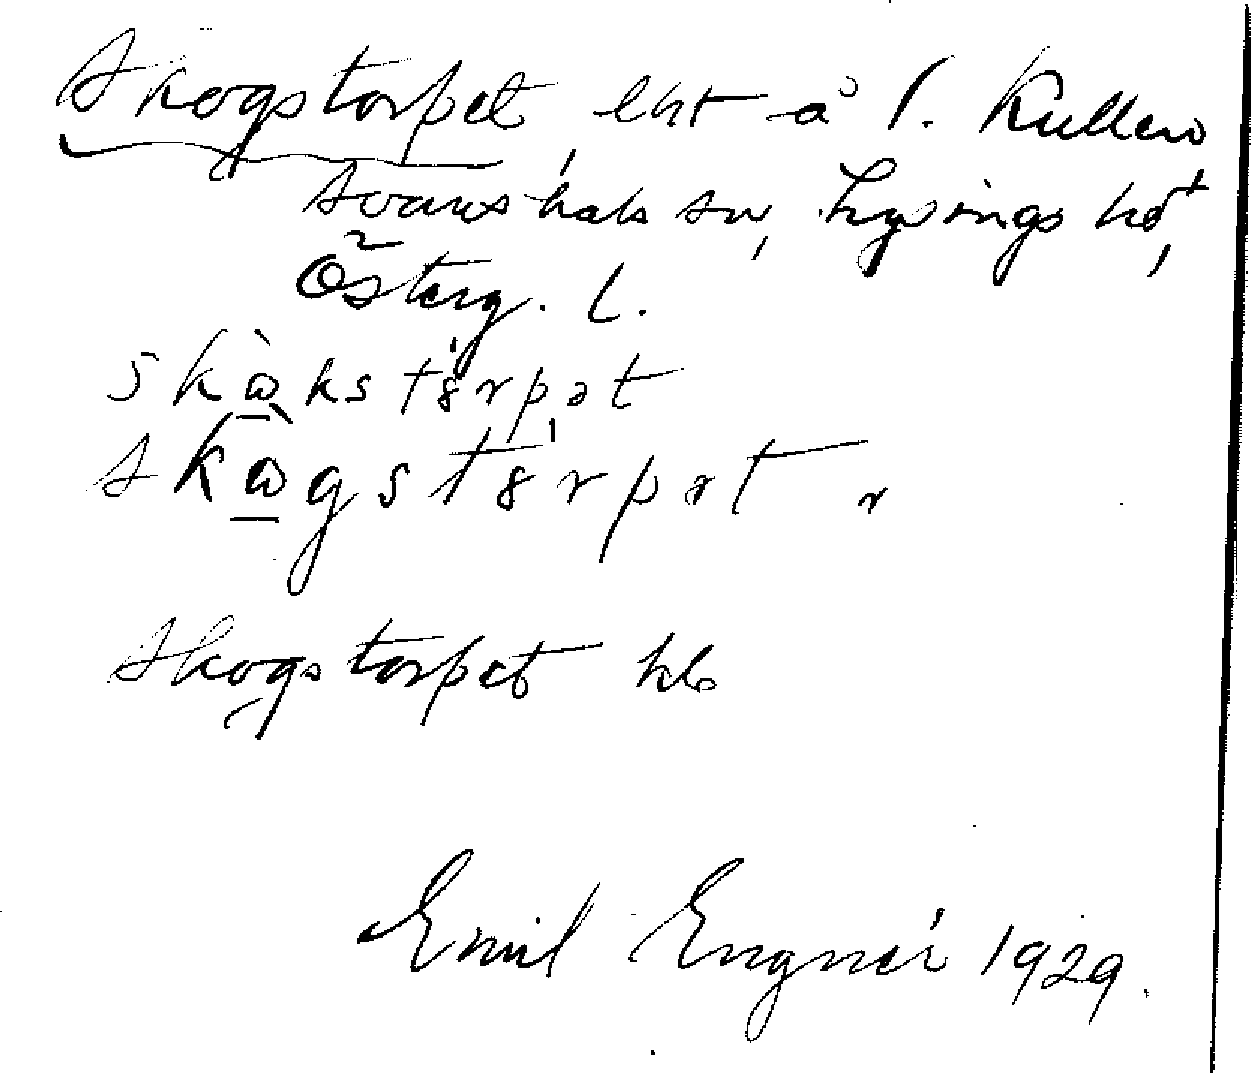 Skogstorpet, lht å l. Kullen
Svanshals sn, Lysings hd,
Österg. l.
skὼkstȣrpət
skὼgstȣrpət
Skogstorpet kb
Emil Engnér 1929.